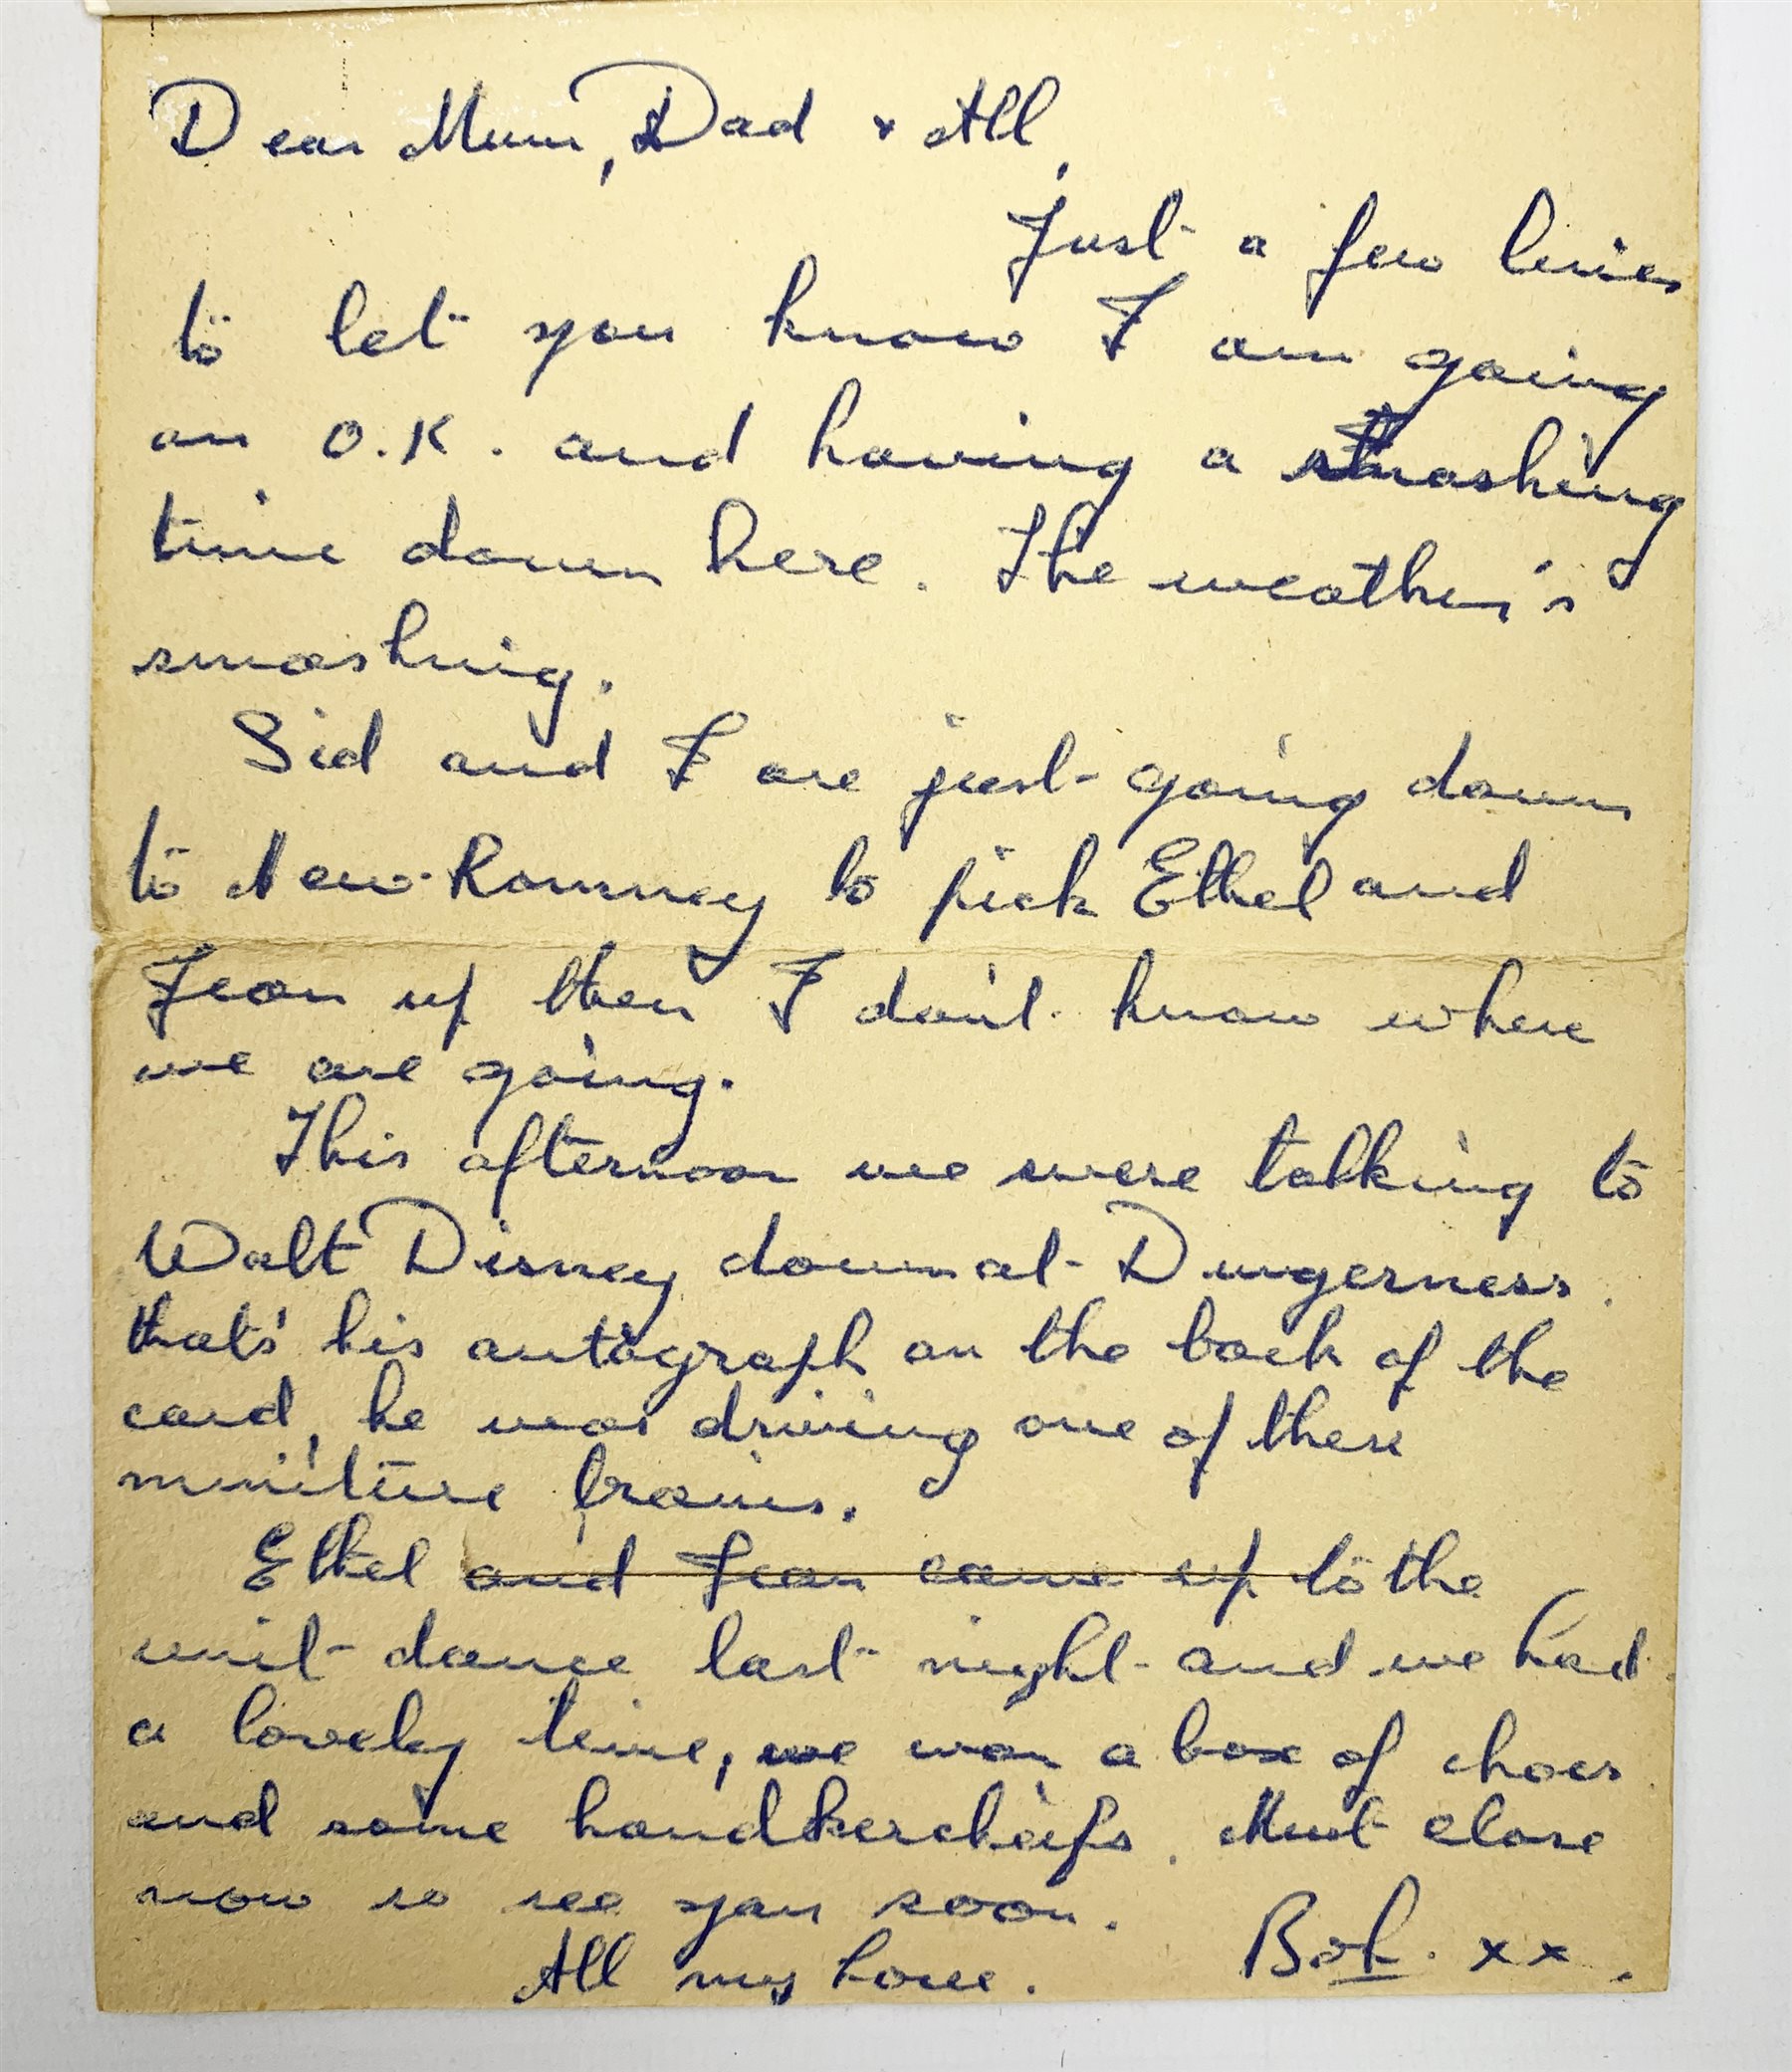 Dear Mum, Dad + All,
Just a few lines
to let you know I am going
on O.K. and having a smashing
time down here. The weather's
smashing.
Sid and I are just going down
to New Romney to pick Ethel and
Jean up then I don't know where
we are going.
This afternoon we were talking to
Walt Disney down at Dungerness.
that's his autograph on the back of the
card, he was driving one of these
miniture trains.
Ethel and Jean came up to the
unit dance last night and we had
a lovely time, we won a box of chocs
and some handkercheifs. Must close
now so see you soon.
All my love. Bob. xx.